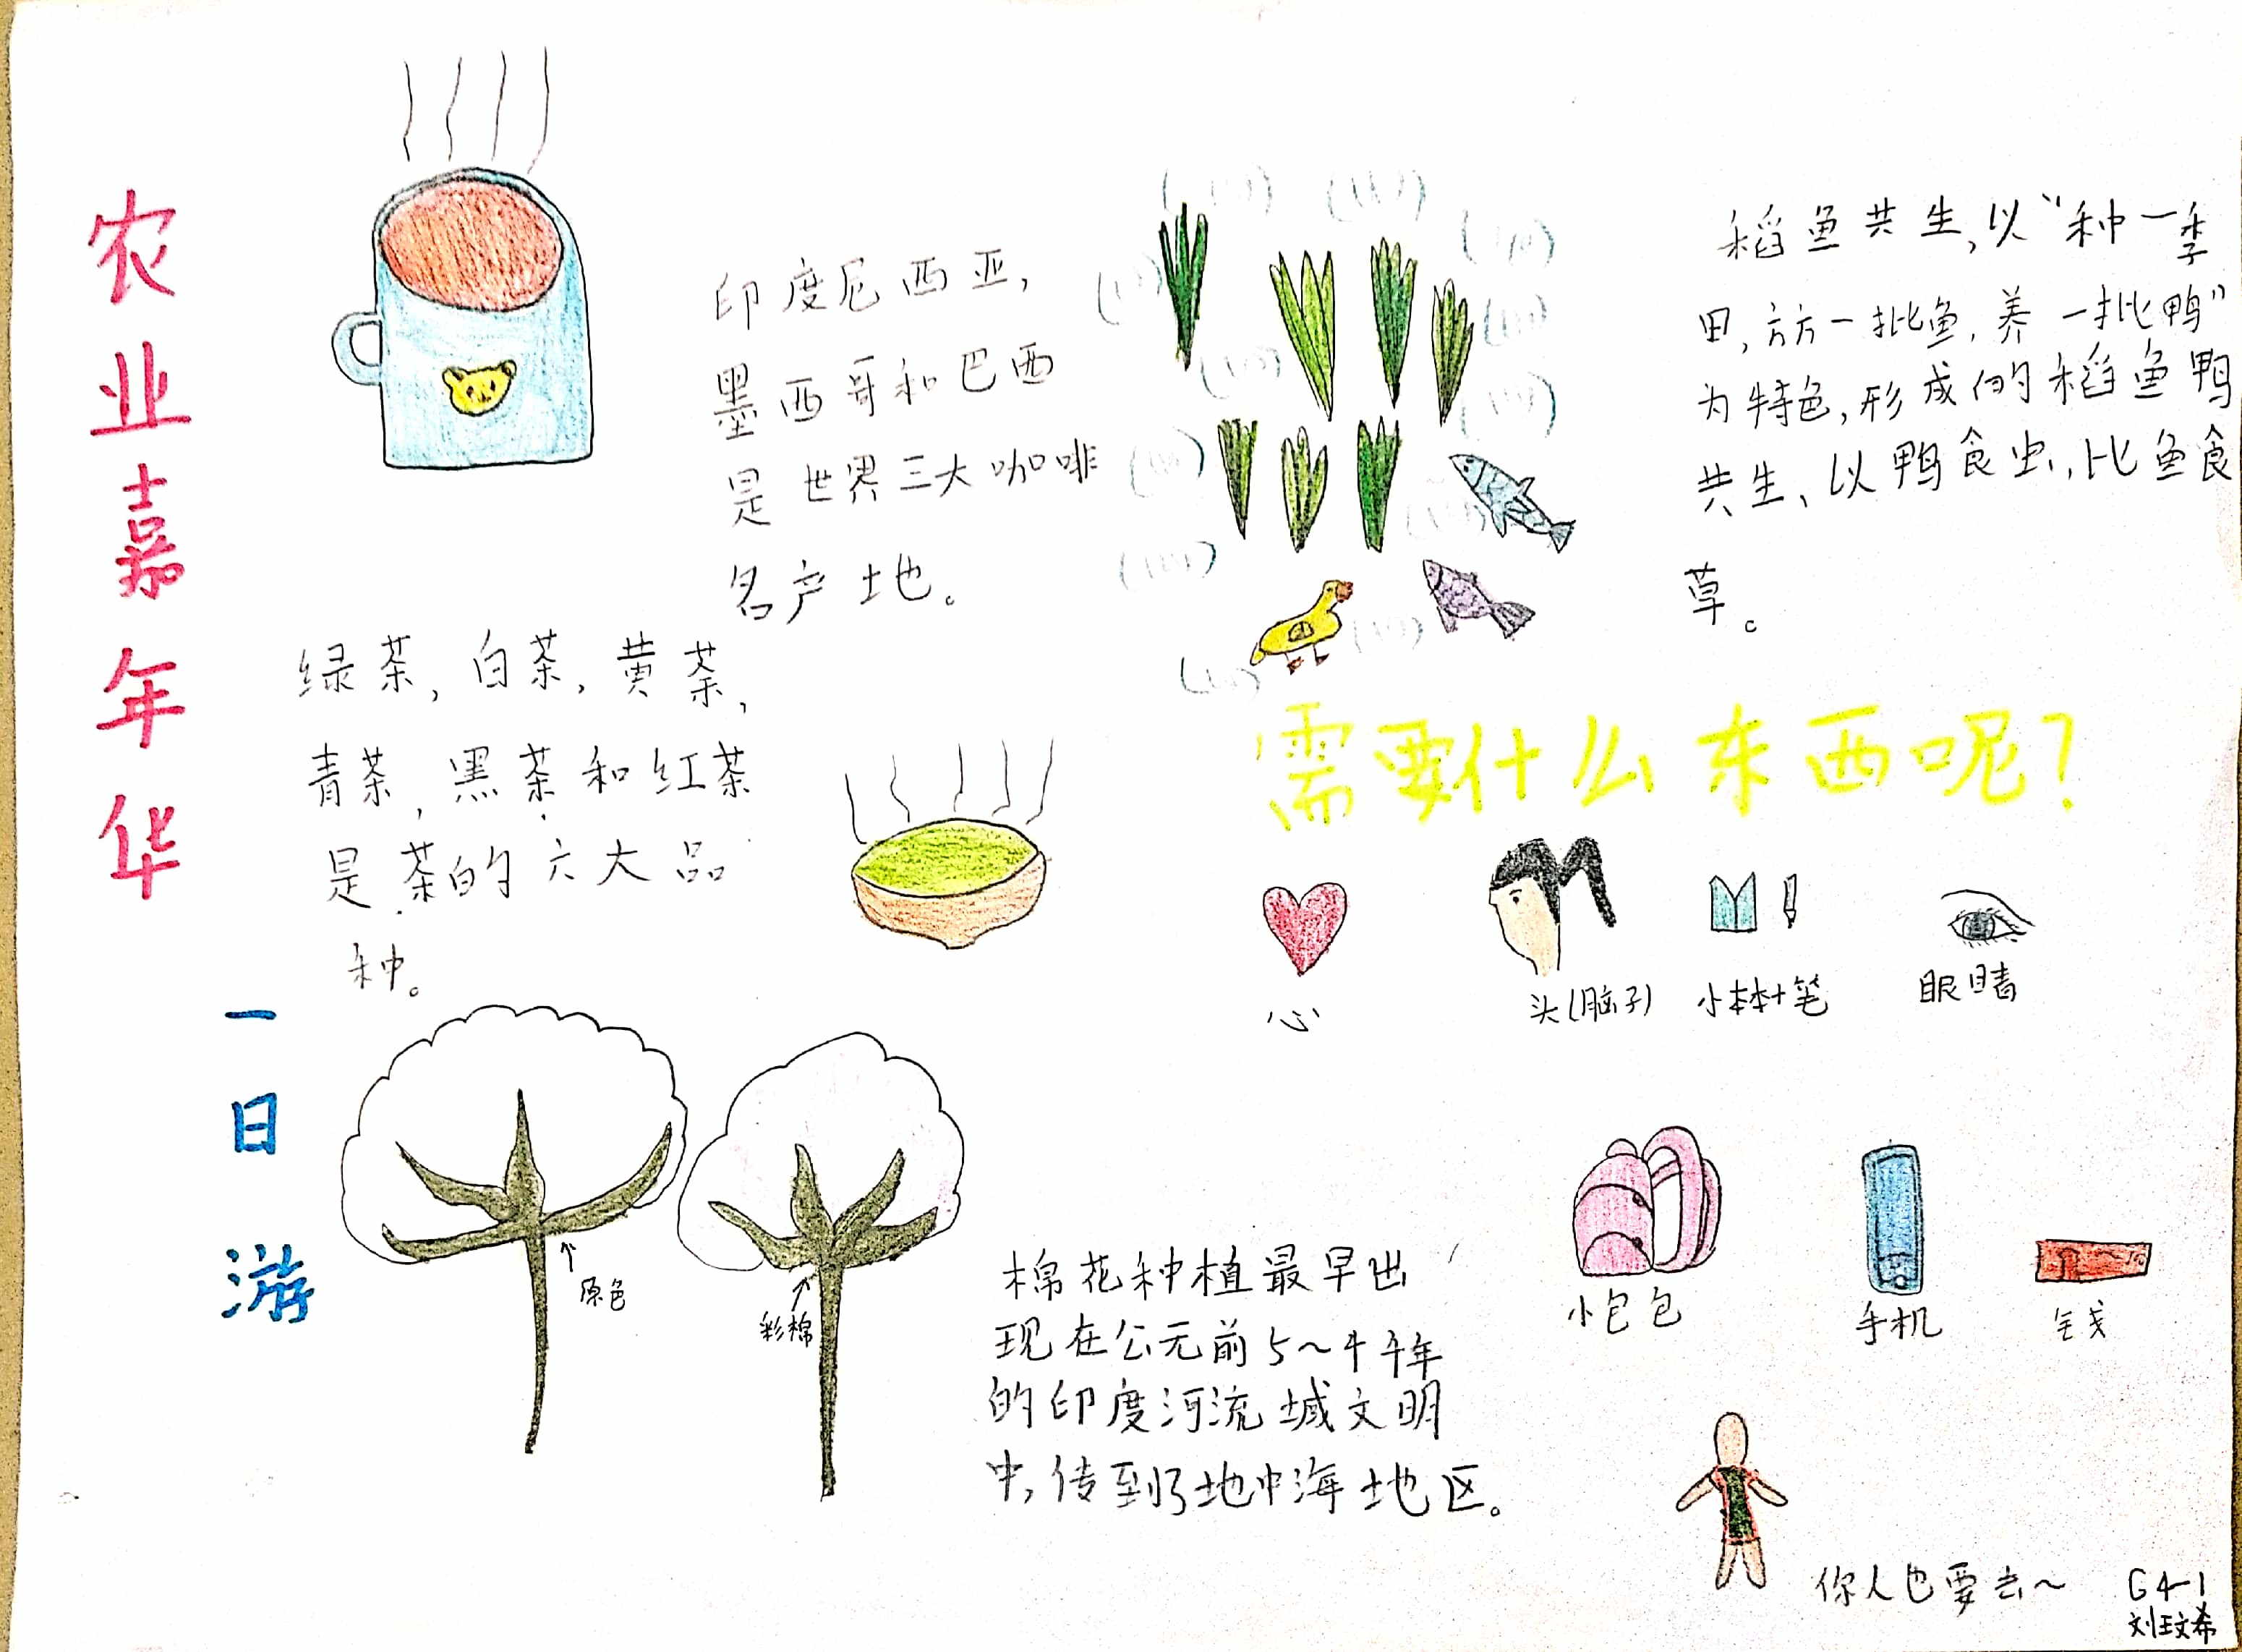 农业嘉年华
一日游
印度尼西亚,
墨西哥和巴西
是世界三大咖啡
名产地。
绿茶,白茶,黄茶,
青茶,黑茶和红茶
是茶的六大品
种。
原色
彩棉
棉花种植最早出
现在公元前5~4千年
的印度河流域文明
中,传到了地中海地区。
稻鱼共生,以“种一季
田,放一批鱼,养一批鸭”
为特色,形成的稻鱼鸭
共生、以鸭食虫,比鱼食
草。
需要什么东西呢?
心
头(脑子)
小本本+笔
眼睛
小包包
手机
钱
你人也要去~
G4-1
刘玟希